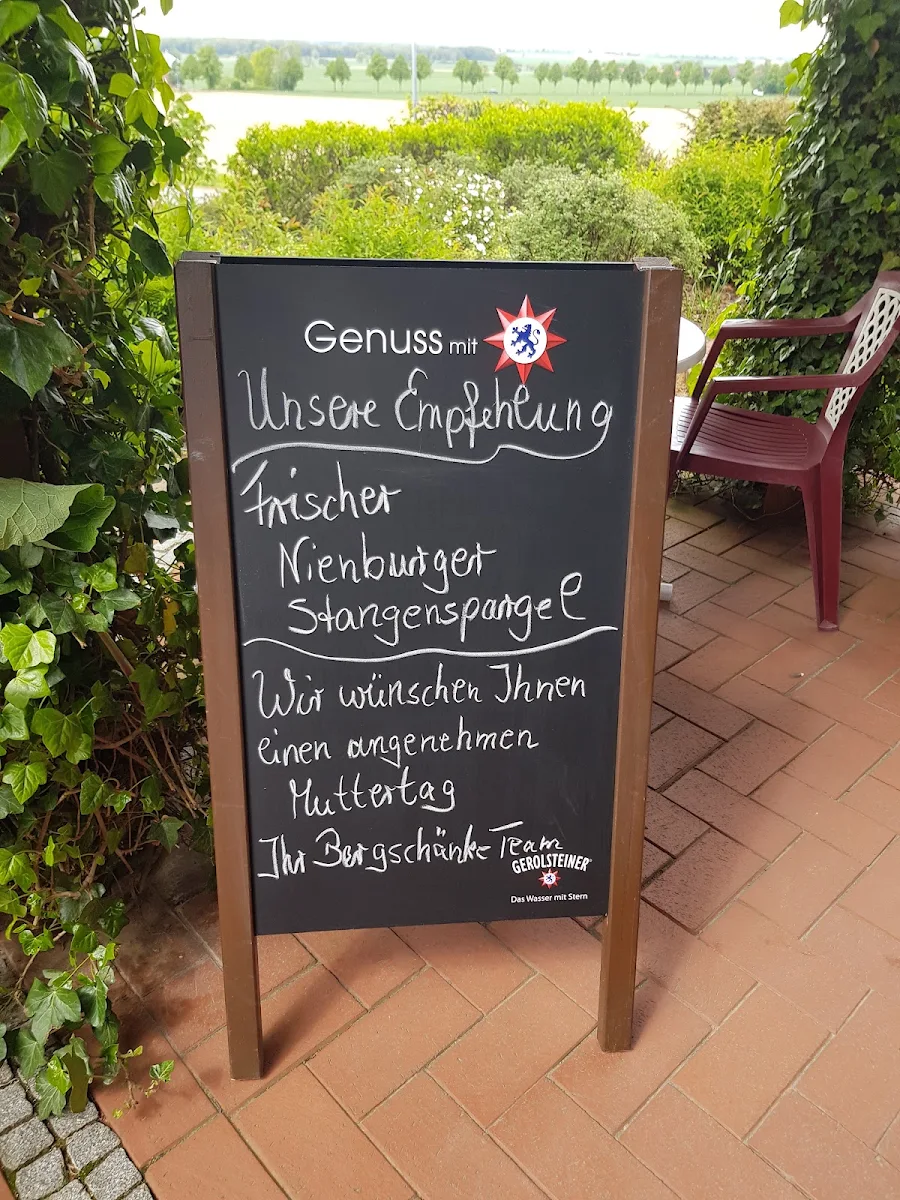 Genuss mit
Unsere Empfehlung
Frischer
Nienburger
Stangenspargel
Wir wünschen Ihnen
einen angenehmen
Muttertag
Ihr Bergschänke Team
GEROLSTEINER
Das Wasser mit Stern